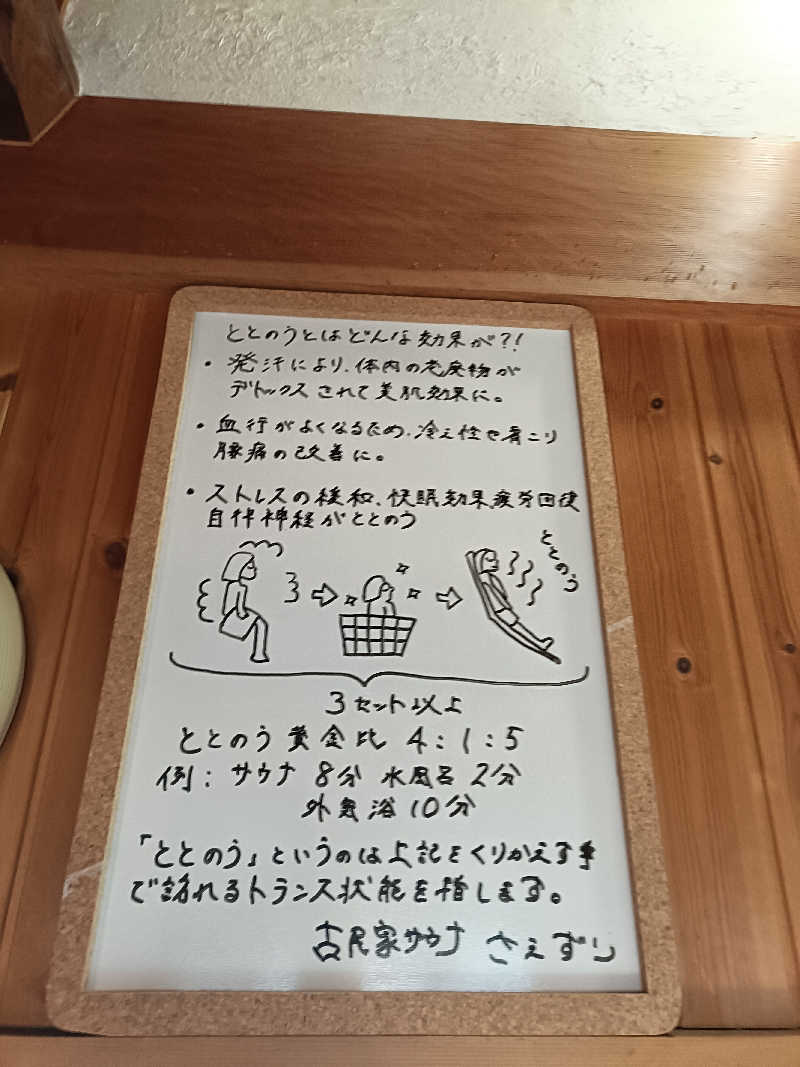 ととのうとはどんな効果が?!
・発汗により、体内の老廃物が
デトックスされて美肌効果に。
・血行がよくなるため、冷え性や肩こり
腰痛の改善に。
・ストレスの緩和、快眠効果、疲労回復
自律神経がととのう
ととのう
3セット以上
ととのう黄金比 4:1:5
例:サウナ 8分 水風呂 2分
外気浴 10分
「ととのう」というのは上記をくりかえす事
で訪れるトランス状態を指します。
古民家サウナ さえずり